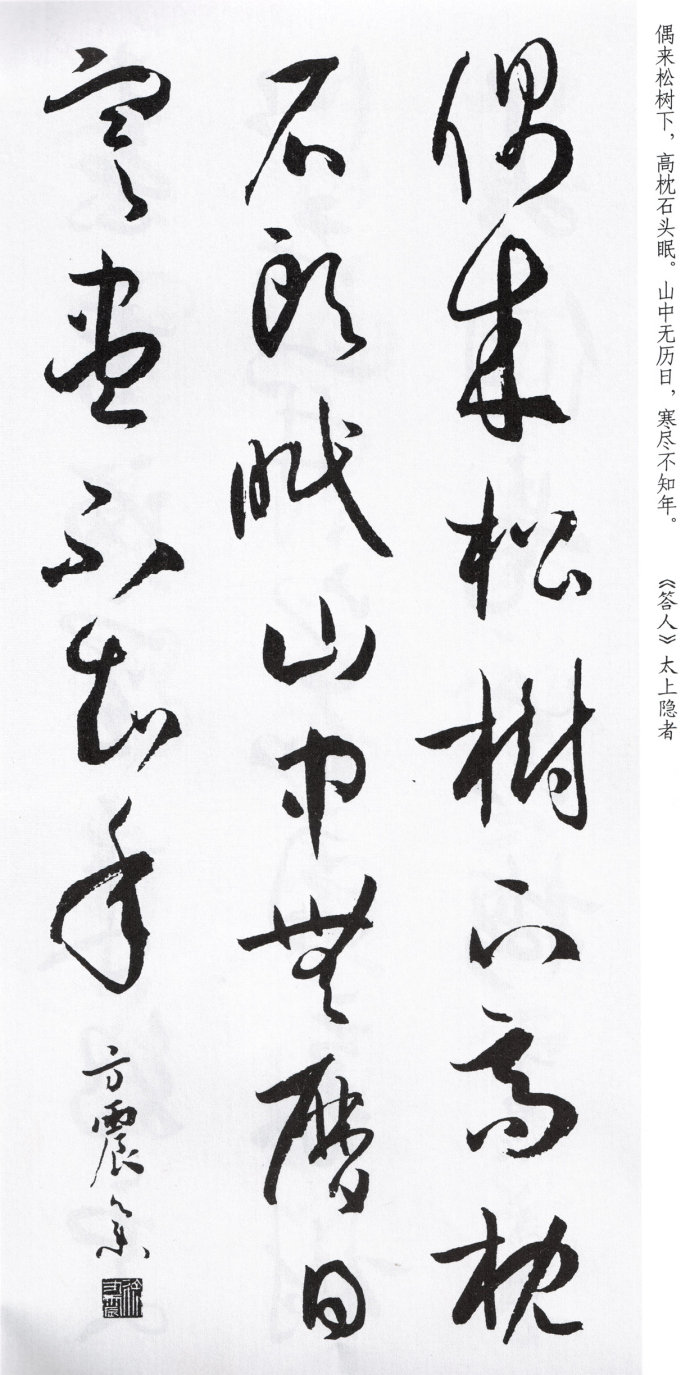 偶来松树下，高枕石头眠。山中无历日，寒尽不知年。 《答人》太上隐者
偶来松樹下高枕
石头眠山中無曆日
寒尽不知年
方震